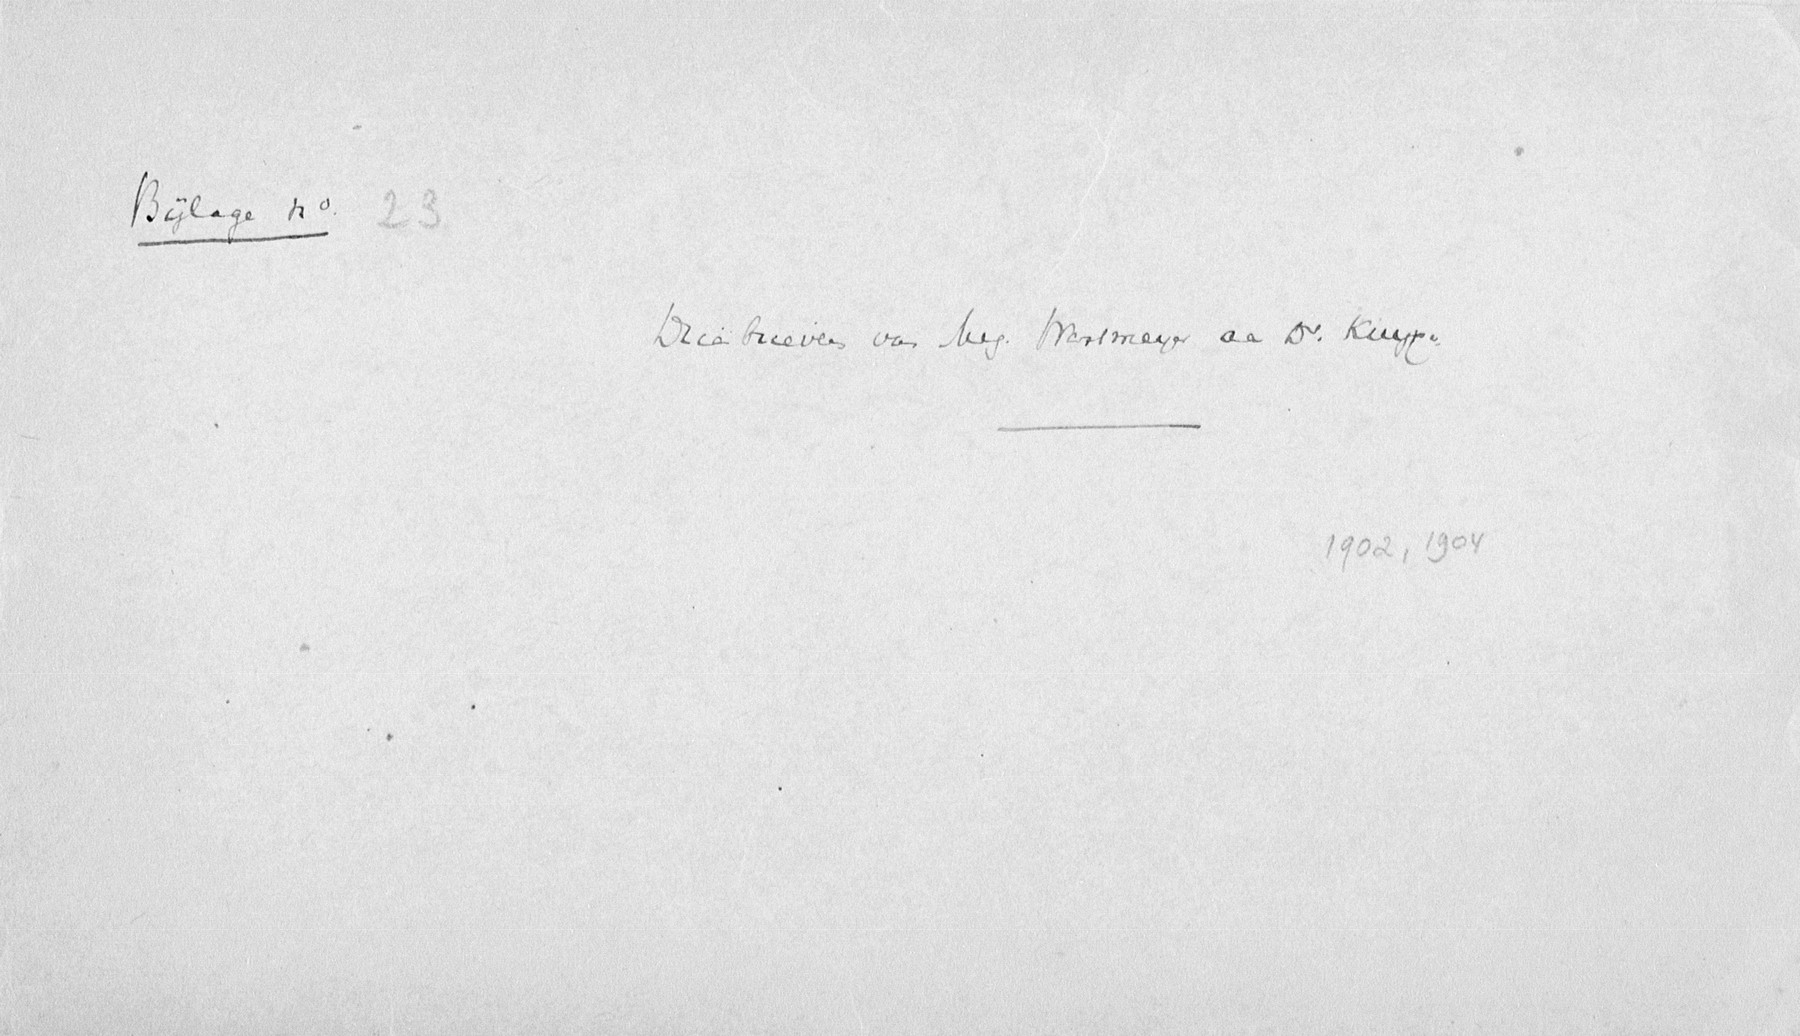 Bijlage no. 23
Drie brieven van Mej. Westmeyer aa Dr. Kuyper
1902, 1904